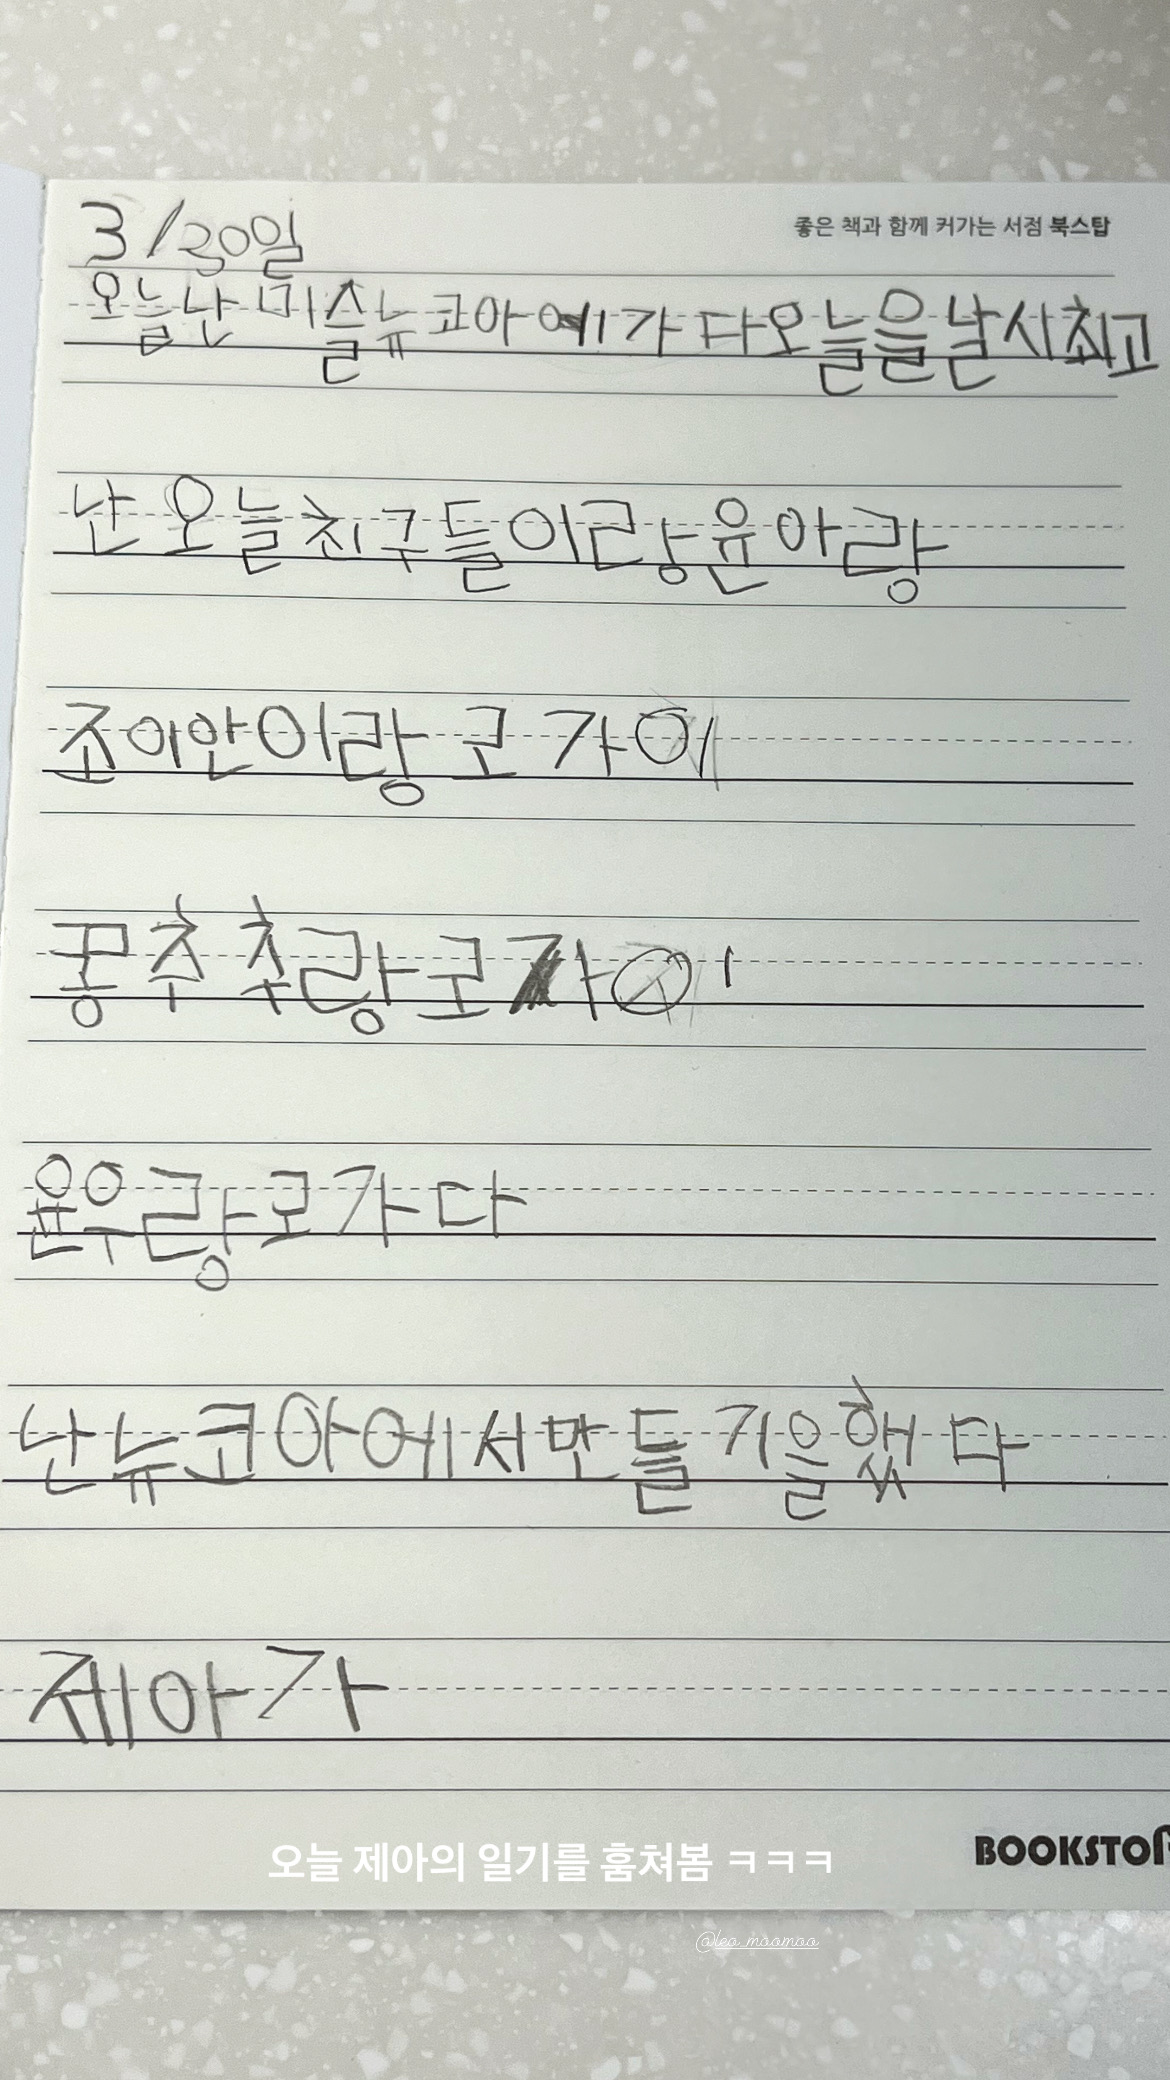 3/30일
좋은 책과 함께 커가는 서점 북스탑
오늘난 미슬뉴코아에가다오늘을날시최고
난오늘친구들이랑윤아랑
조이안이랑로가이
꽁추추랑로가이
윤우랑로가다
난뉴코아에서만들기을했다
제아가
BOOKSTO
오늘 제아의 일기를 훔쳐봄 ㅋㅋㅋ
@leo_moomoo